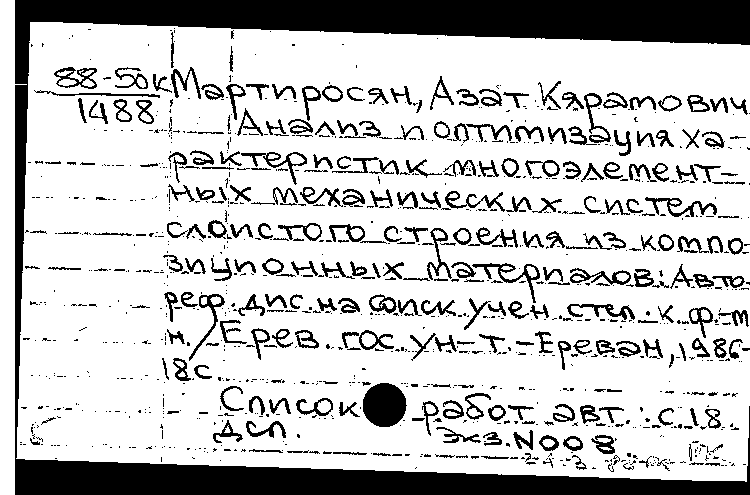 88-50к
1488
Мартиросян, Азат Кярамович
Анализ и оптимизация ха-
рактеристик многоэлемент-
ных механических систем
слоистого строения из компо-
зиционных материалов: Авто-
реф. дис. на соиск. учен. степ. к. ф.-м.
н. / Ерев. гос. ун-т. - Ереван, 1986-
18с.
Список работ авт.: с. 18.
ДСП. Экз. N008